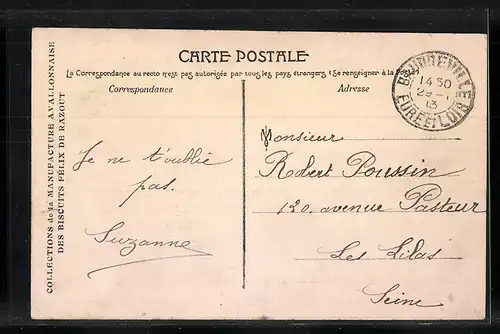 CARTE POSTALE
La Correspondance au recto n'est pas autorisée par tous les pays étrangers (Se renseigner à la Poste)
Correspondance
Adresse
BAUDREVILLE
14 50
29 - 
13
EURE ET LOIR
Je ne t'oublie
pas.
Suzanne
Monsieur
Robert Poussin
120, avenue Pasteur
Les Lilas
Seine
COLLECTIONS de la MANUFACTURE AVALLONNAISE
DES BISCUITS FÉLIX DE RAZOUT